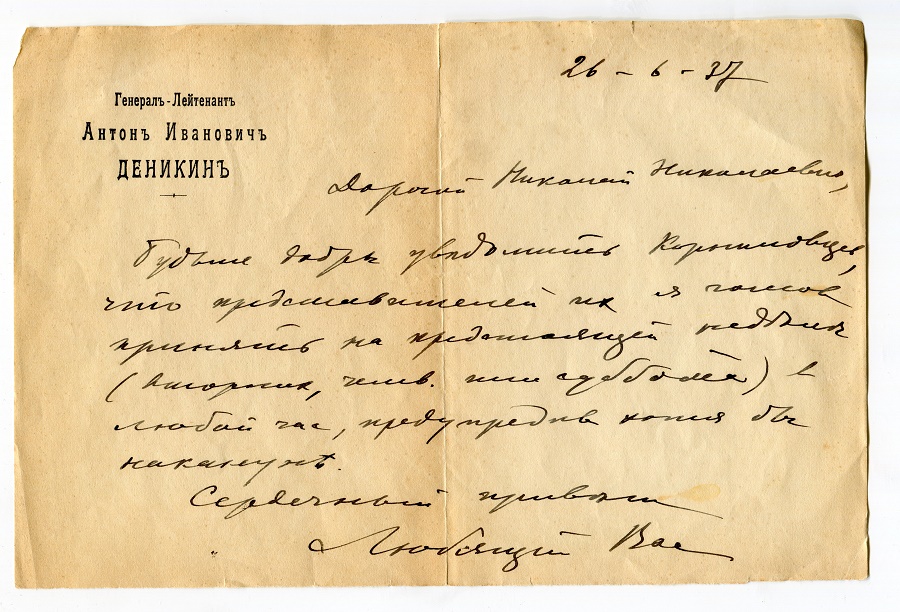 26 - 6 - 37
Генералъ-Лейтенантъ
Антонъ Ивановичъ
ДЕНИКИНЪ
Дорогой Николай Николаевич,
Будьте добры уведомить Корниловцев,
что представителей их я готов
принять на предстоящей неделе
(вторник, четв. или суббота) в
любой час, предупредив хотя бы
наканунѣ.
Сердечный привет
Любящий Вас